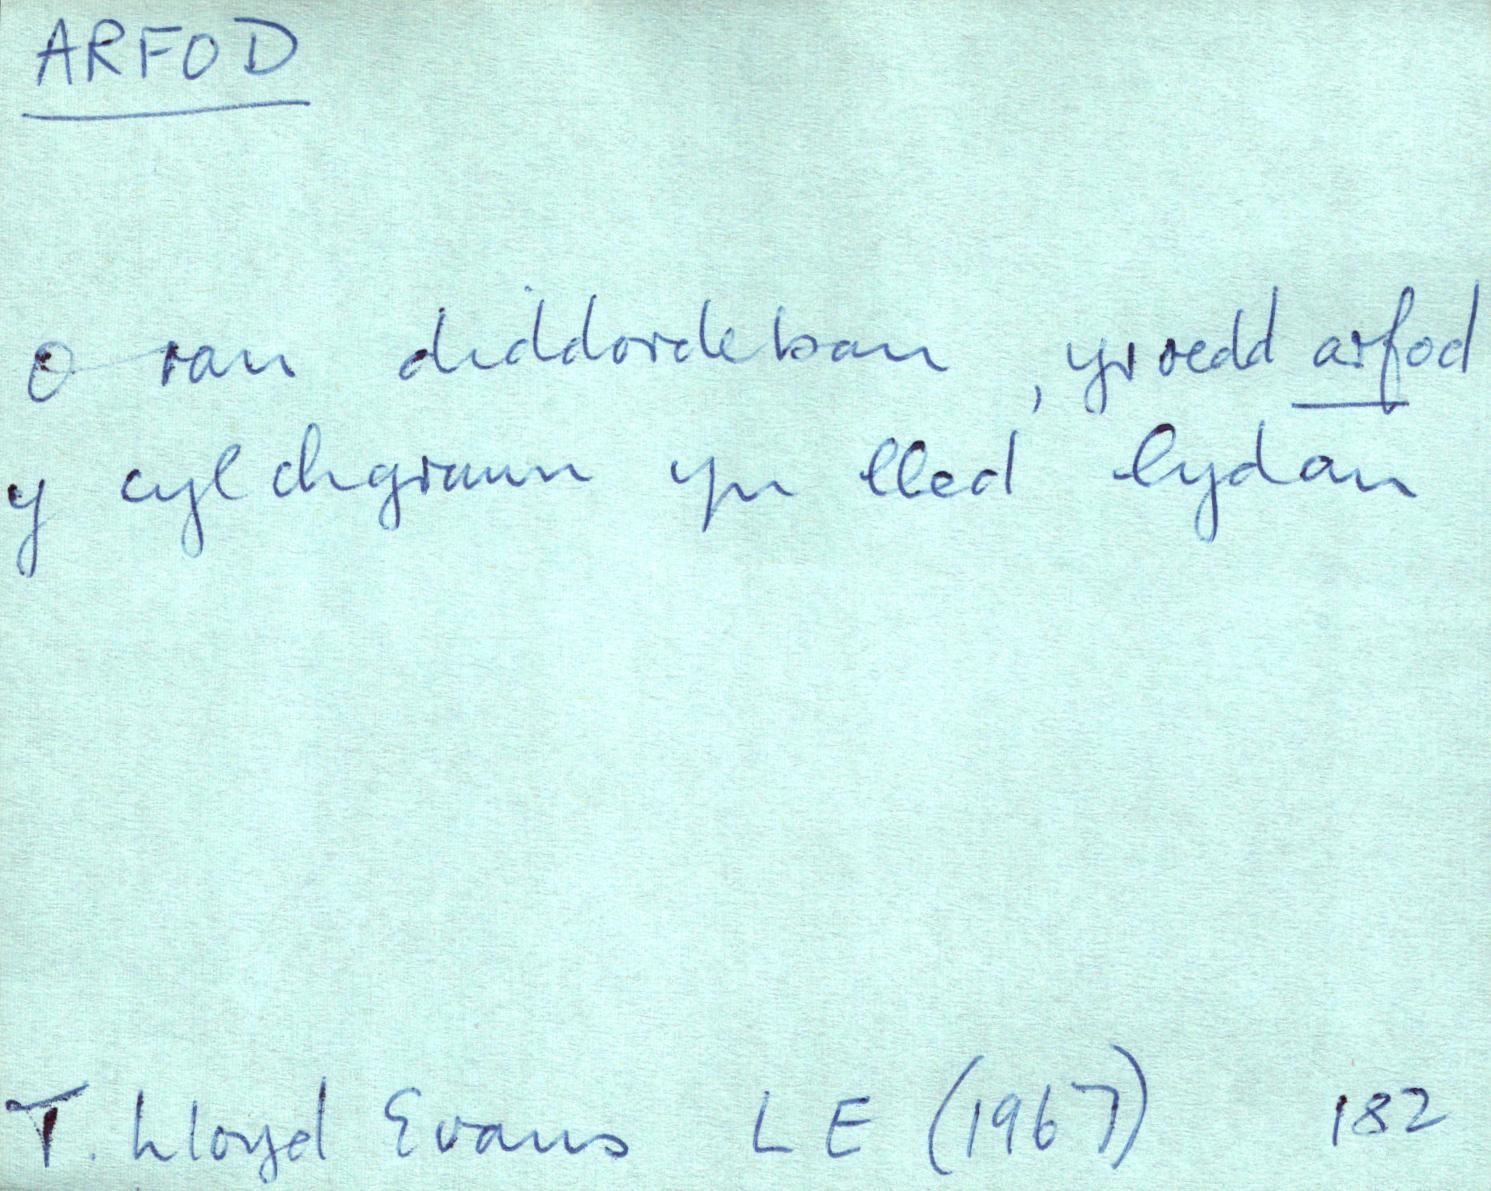 ARFOD
O ran diddordebau, yr oedd arfod
y cylchgrawn yn lled lydan
T. Lloyd Evans LE (1967) 182